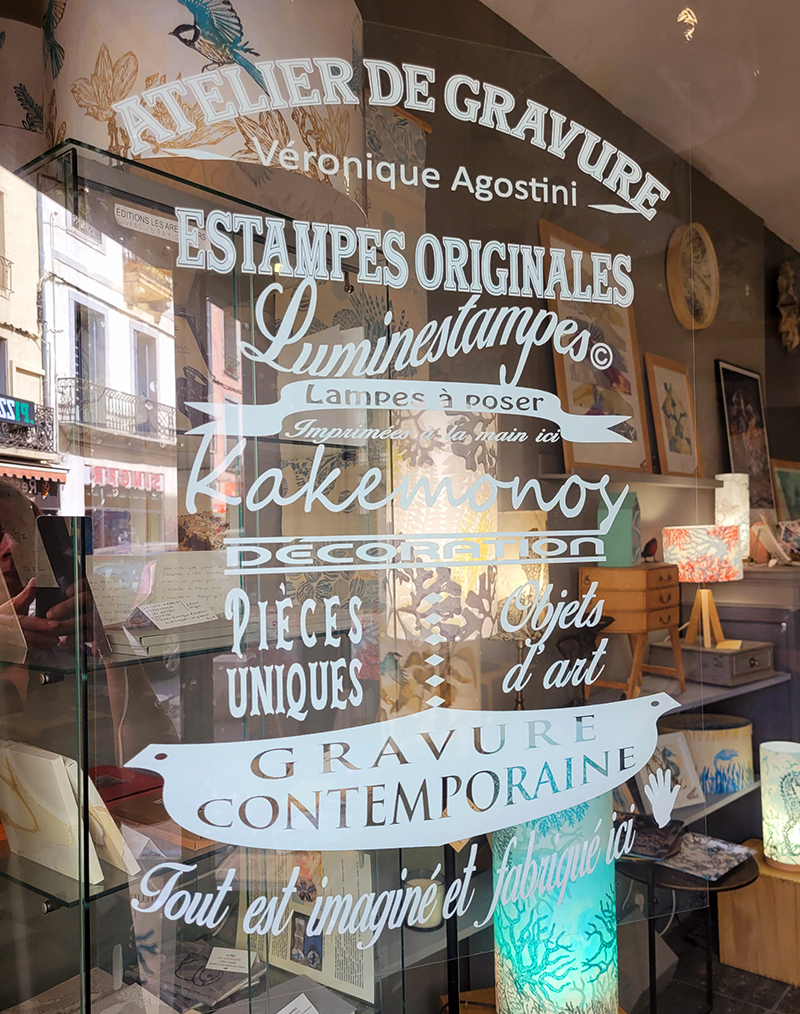 ATELIER DE GRAVURE
Véronique Agostini
ÉDITIONS LES
ESTAMPES ORIGINALES
Luminestampes©
Lampes à poser
Imprimées à la main ici
Kakemonos
DÉCORATION
PIÈCES
UNIQUES
Objets
d'art
GRAVURE
CONTEMPORAINE
Tout est imaginé et fabriqué ici
SINGER